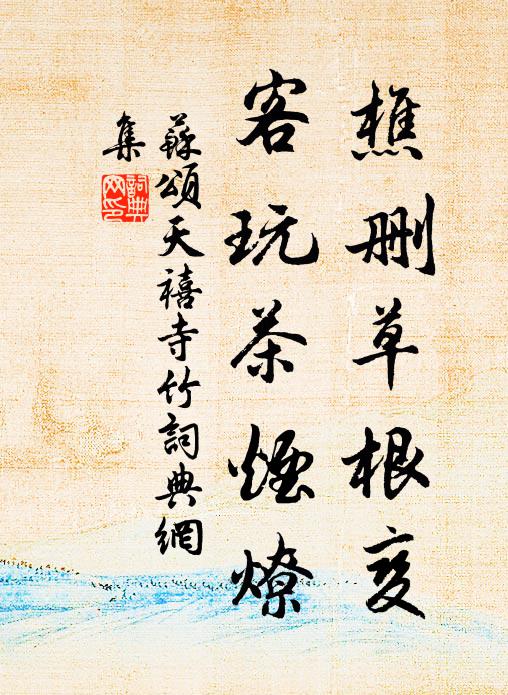 樵刪草根变
客玩茶煙燎
蘇頌天禧寺竹詞典網
集
詞典
网印